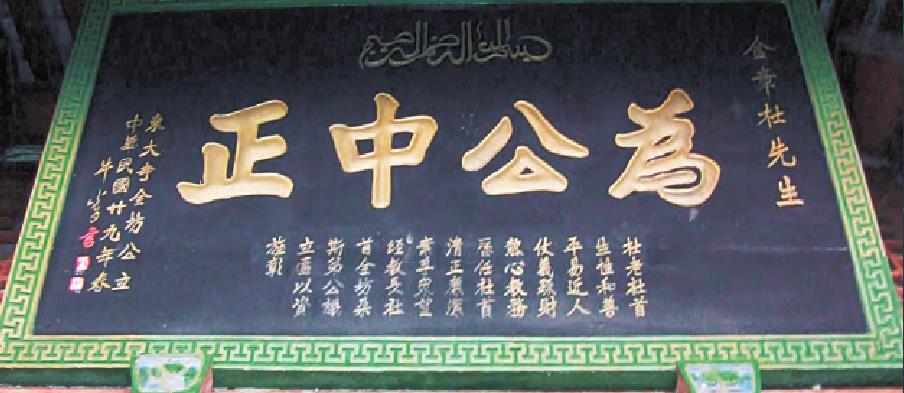 بسم الله الرحمن الرحيم
金 杜先生
為公中正
杜老社首
生性和善
平易近人
仗義疏財
熱心教務
歷任社首
清正廉潔
孚眾望
經教友社
首全坊
公議
立匾以資
旌彰
東大寺全坊公立
中華民國廿九年春
牛 書